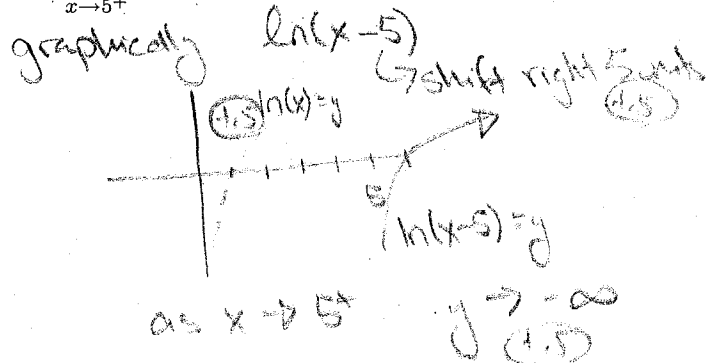 x→5⁺
graphically ln(x-5)
↳ shift right 5 units
(.5)
(.5) ln(x)=y
5
ln(x-5)=y
as x → 5⁺ y → -∞
(.5)